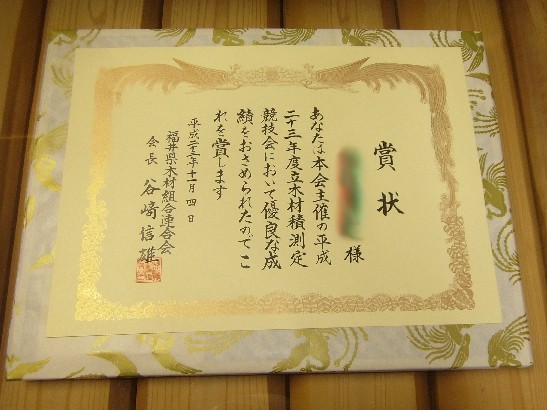 賞状
様
あなたは本会主催の平成
二十三年度立木材積測定
競技会において優良な成
績をおさめられたのでこ
れを賞します
平成二十三年十一月四日
福井県木材組合連合会
会長 谷﨑信雄